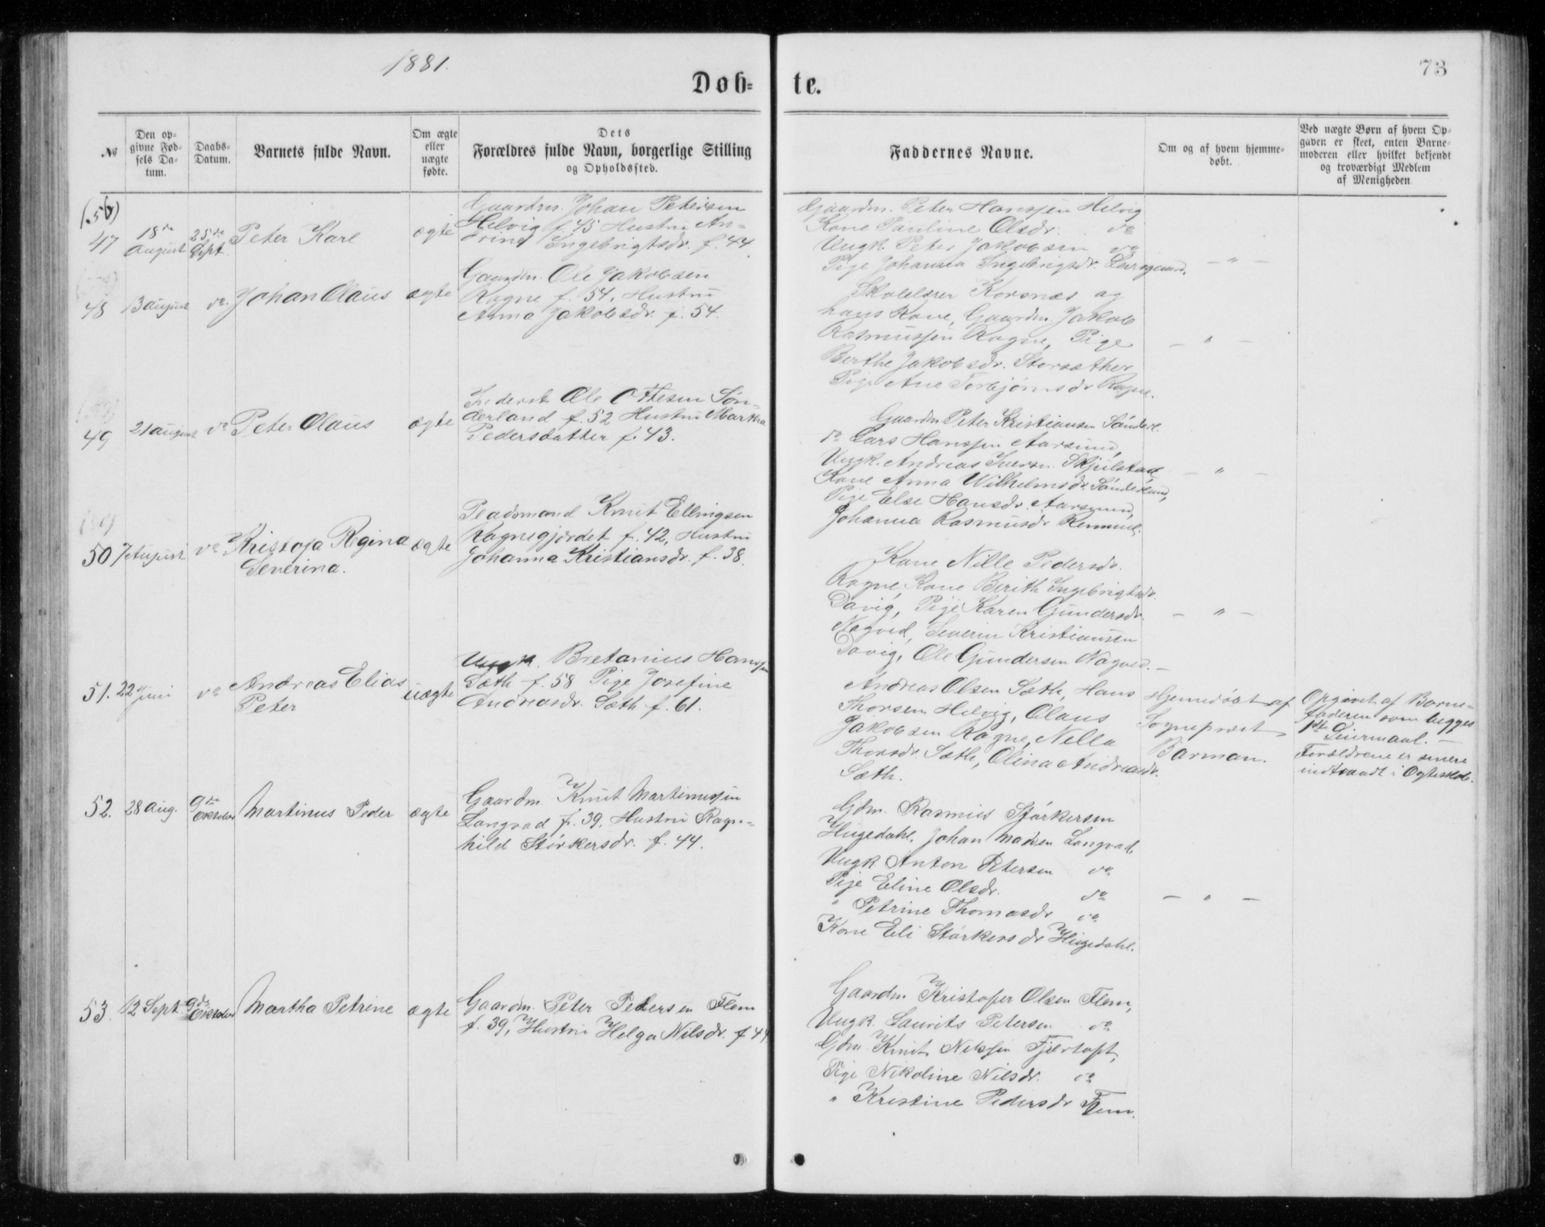 1881.
73
Döb=
te.
No
Den op-
givne Fød-
sels Da-
tum.
Daabs-
Datum.
Barnets fulde Navn.
Om ægte
eller
uægte
fødte.
Dets
Forældres fulde Navn, borgerlige Stilling
og Opholdssted.
Faddernes Navne.
Om og af hvem hjemme-
døbt.
Ved uægte Børn af hvem Op-
gaven er skeet, enten Barne-
moderen eller hvilket bekjendt
og troværdigt Medlem
af Menigheden
47
18de
August
25de
Sept.
Peter Karl
ægte
Gaardm. Johan Petersen
Helvig f. 45 Hustru An-
Ingebrigtsdr. f. 44.
Gaardm. Peter Hanssen Helvig
Kone Pauline Olsdr. do
Ungk. Peter Jakobsen do
Pige Johanna Ingebrigtsdr.
— " —
48
13 august
do.
Johan Olaus
ægte
Gaardm. Ole Jakobsen
Ragne f. 54, Hustru
Anna Jakobsdr. f. 54.
Skolelærer Korsnæs og
hans Kone, Gaardm. Jakob
Rasmussen Ragne, Pige
Berthe Jakobsdr. Storsæther
Pige Ane Torbjørnsdr Ragne.
— " —
49
21 august
do
Peter Olaus
ægte
Inderst Ole Ottesen Søn-
derland f. 52 Hustru Martha
Pedersdatter f. 43.
Gaardm Peter Kristiansen Sønderl.
do Lars Hanssen Aarsund,
Ungk. Andreas Iversen Skjelstad
Kone Anna Wilhelmsdr Sønderland,
Pige Else Hansdr. Aarsund,
Johanna Rasmusdr
— " —
50
7 August
do
Kristofa Regina
Severina.
ægte
Pladsmand Knut Ellingsen
Ragnegjærdet f. 42, Hustru
Johanna Kristiansdr. f. 38.
Kone Nille Pedersdr.
Ragne, Kone Berith Ingebrigtsdr.
Davig, Pige Karen Gundersdr.
Nogved, Severin Kristiansen
Davig, Ole Gundersen Nogved.—
— " —
51.
22 Juni
do
Andreas Elias
Peter
uægte
Ungk. Bretanius Hanssen
Sæth f. 58 Pige Josefine
Andreasdr. Sæth f. 61.
Andreas Olsen Sæth, Hans
Thorsen Helvig, Olaus
Jakobsen Ragne, Nella
Thorsdr. Sæth, Olina Andreasdr.
Sæth.
Hjemmedøbt af
Sognepræst
Barman.
Opgivet af Barne-
faderen som begges
1ste Leiermaal. —
Forældrene er senere
indtraadt i Ægteskab.
52.
28 Aug.
9de
Oktober
Martinus Peder
ægte
Gaardm. Knut Martinussen
Langvad f. 39, Hustru Ragn-
hild Størkersdr. f. 44.
Gdm. Rasmus Størkersen
Hugedahl, Johan Madsen Langvad,
Ungk Anton Petersen do
Pige Eline Olsdr. do
" Petrine Thomasdr do
Kone Eli Størkersdr Hugedahl.
— " —
53.
12 Sept.
9de
Oktober
Martha Petrine
ægte
Gaardm. Peter Pedersen Flem
f. 39, Hustru Helga Nilsdr. f. 44
Gaardm Kristofer Olsen Flem,
Ungk. Laurits Petersen do
Gdm Knut Nilssen Fjærtoft,
Pige Nikoline Nilsdr. do
" Kristine Pedersdr Flem.